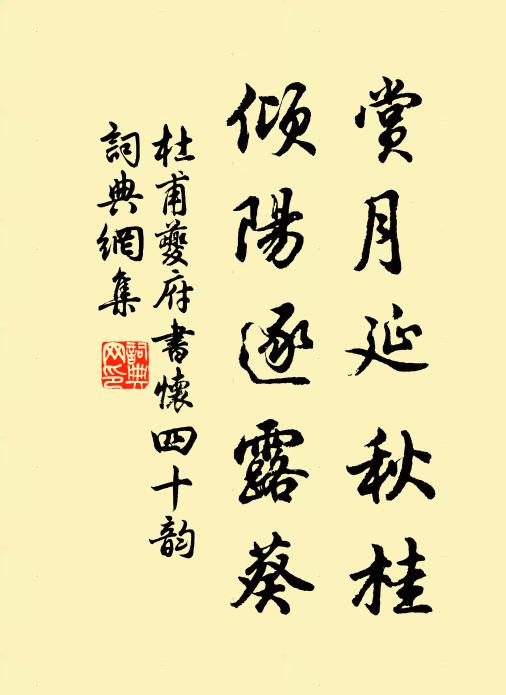 賞月延秋桂
傾陽逐露葵
杜甫夔府書懷四十韵
詞典網集
詞典網印